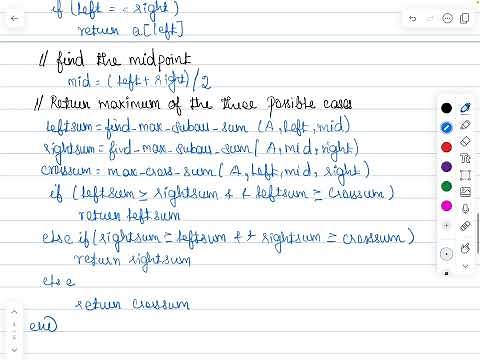 if (left == right)
return a[left]
// find the midpoint
mid = (left + right)/2
// Return maximum of the three possible cases
leftsum = find-max-subarr-sum (A, left, mid)
rightsum = find-max-subarr-sum (A, mid, right)
crosssum = max-cross-sum (A, left, mid, right)
if (leftsum ≥ rightsum && leftsum ≥ crosssum)
return leftsum
else if (rightsum ≥ leftsum && rightsum ≥ crosssum)
return rightsum
else
return crosssum
end